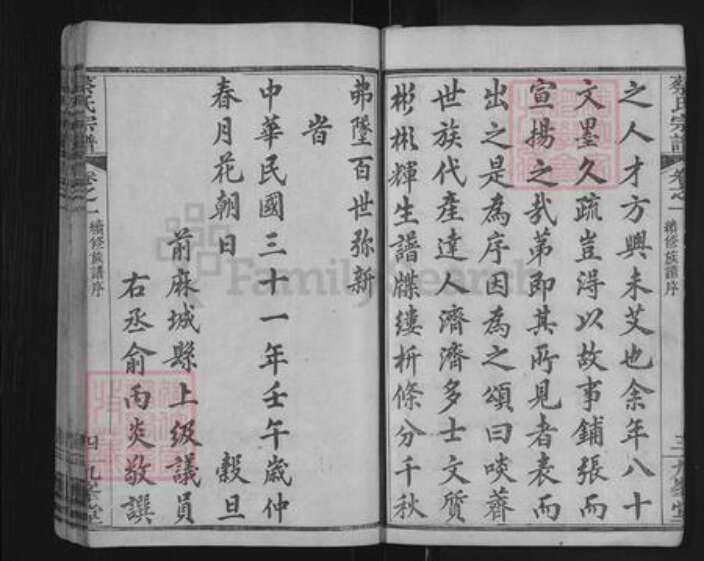 蔡氏宗譜
卷之一
續修族譜序
三
之人才方興未艾也余年八十
文墨久疏豈淂以故事鋪張而
宣揚之㢤苐即其所見者表而
出之是為序因為之頌曰啖薺
世族代產達人濟濟多士文質
彬彬輝生譜牒縷析條分千秋
弗墜百世弥新
旹
中華民國三十一年壬午歲仲
春月花朝日 穀旦
前麻城縣上級議員
右丞俞丙炎敬譔
蔡氏宗譜
卷之一
續修族譜序
四
FamilySearch